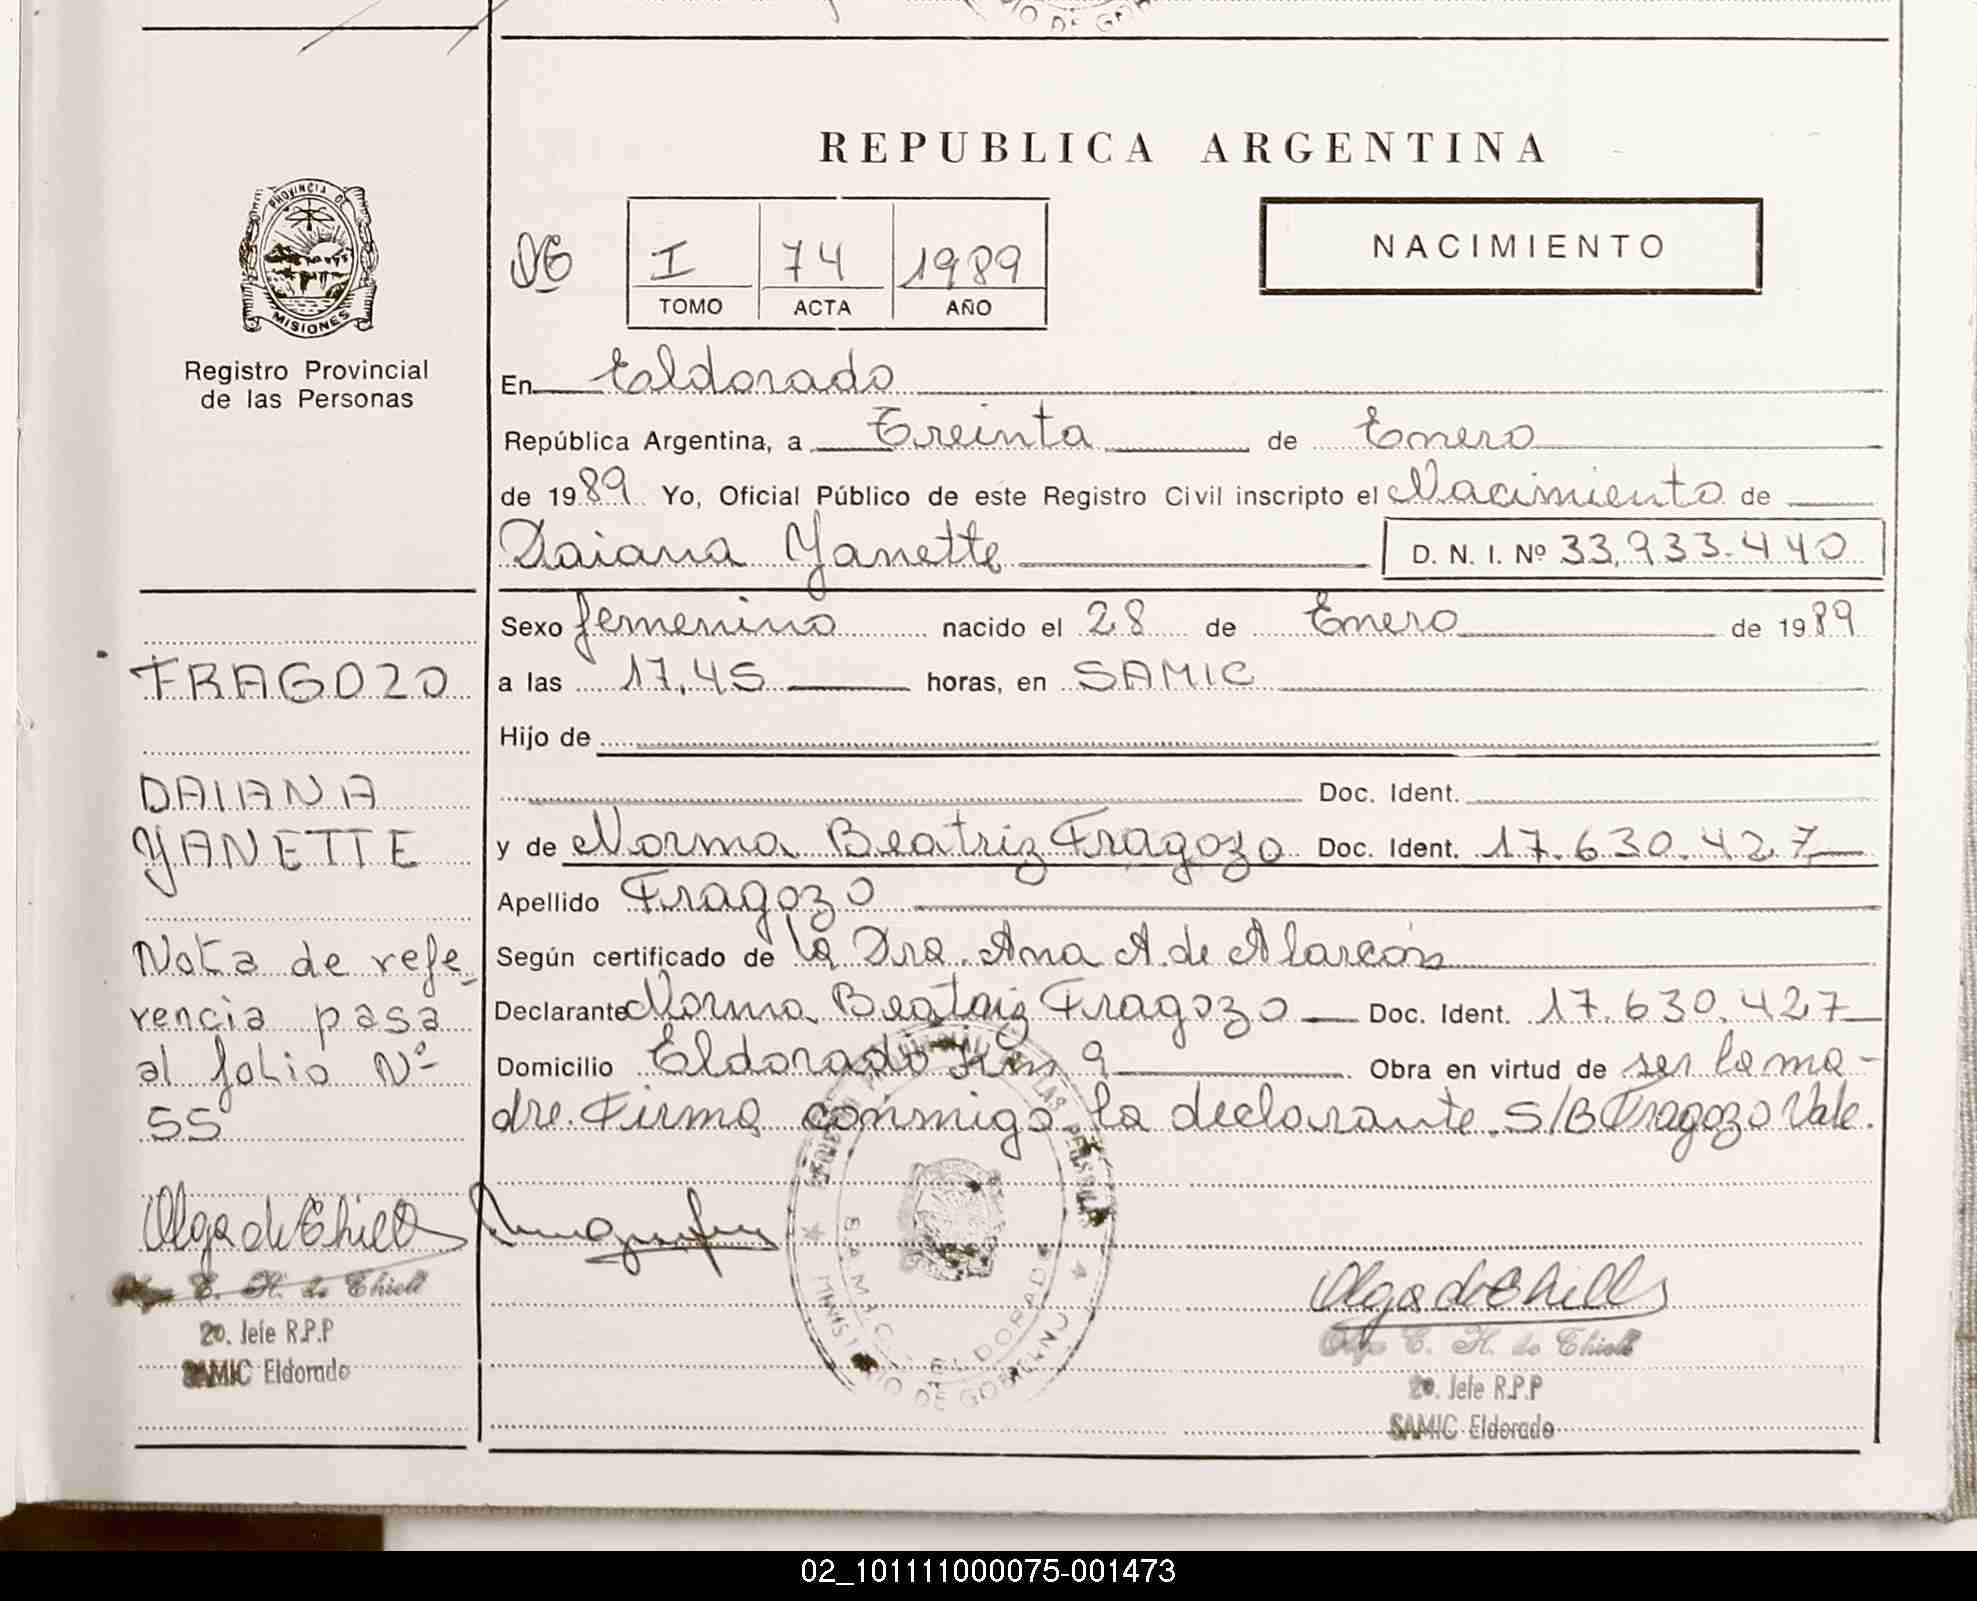 REPUBLICA ARGENTINA
PROVINCIA DE
MISIONES
Registro Provincial
de las Personas
I 74 1989
TOMO ACTA AÑO
NACIMIENTO
En Eldorado
República Argentina, a Treinta de Enero
de 1989 Yo, Oficial Público de este Registro Civil inscripto el Nacimiento de
Daiana Yanette D. N. I. Nº 33.933.440
Sexo femenino nacido el 28 de Enero de 1989
a las 17,45 horas, en SAMIC
Hijo de
Doc. Ident.
y de Norma Beatriz Fragozo Doc. Ident. 17.630.427
Apellido Fragozo
Según certificado de la Dra. Ana A. de Alarcón
Declarante Norma Beatriz Fragozo Doc. Ident. 17.630.427
Domicilio Eldorado Km 9 Obra en virtud de ser la ma-
dre. Firma conmigo la declarante. S/B Fragozo Vale.
FRAGOZO
DAIANA
YANETTE
Nota de refe-
rencia pasa
al folio Nº
55
Olga de Thiell
Olga E. H. de Thiell
2o. Jefe R.P.P
SAMIC Eldorado
SAMIC ELDORADO
MINISTERIO DE GOBIERNO
Olga de Thiell
Olga E. H. de Thiell
2o. Jefe R.P.P
SAMIC Eldorado
02_101111000075-001473